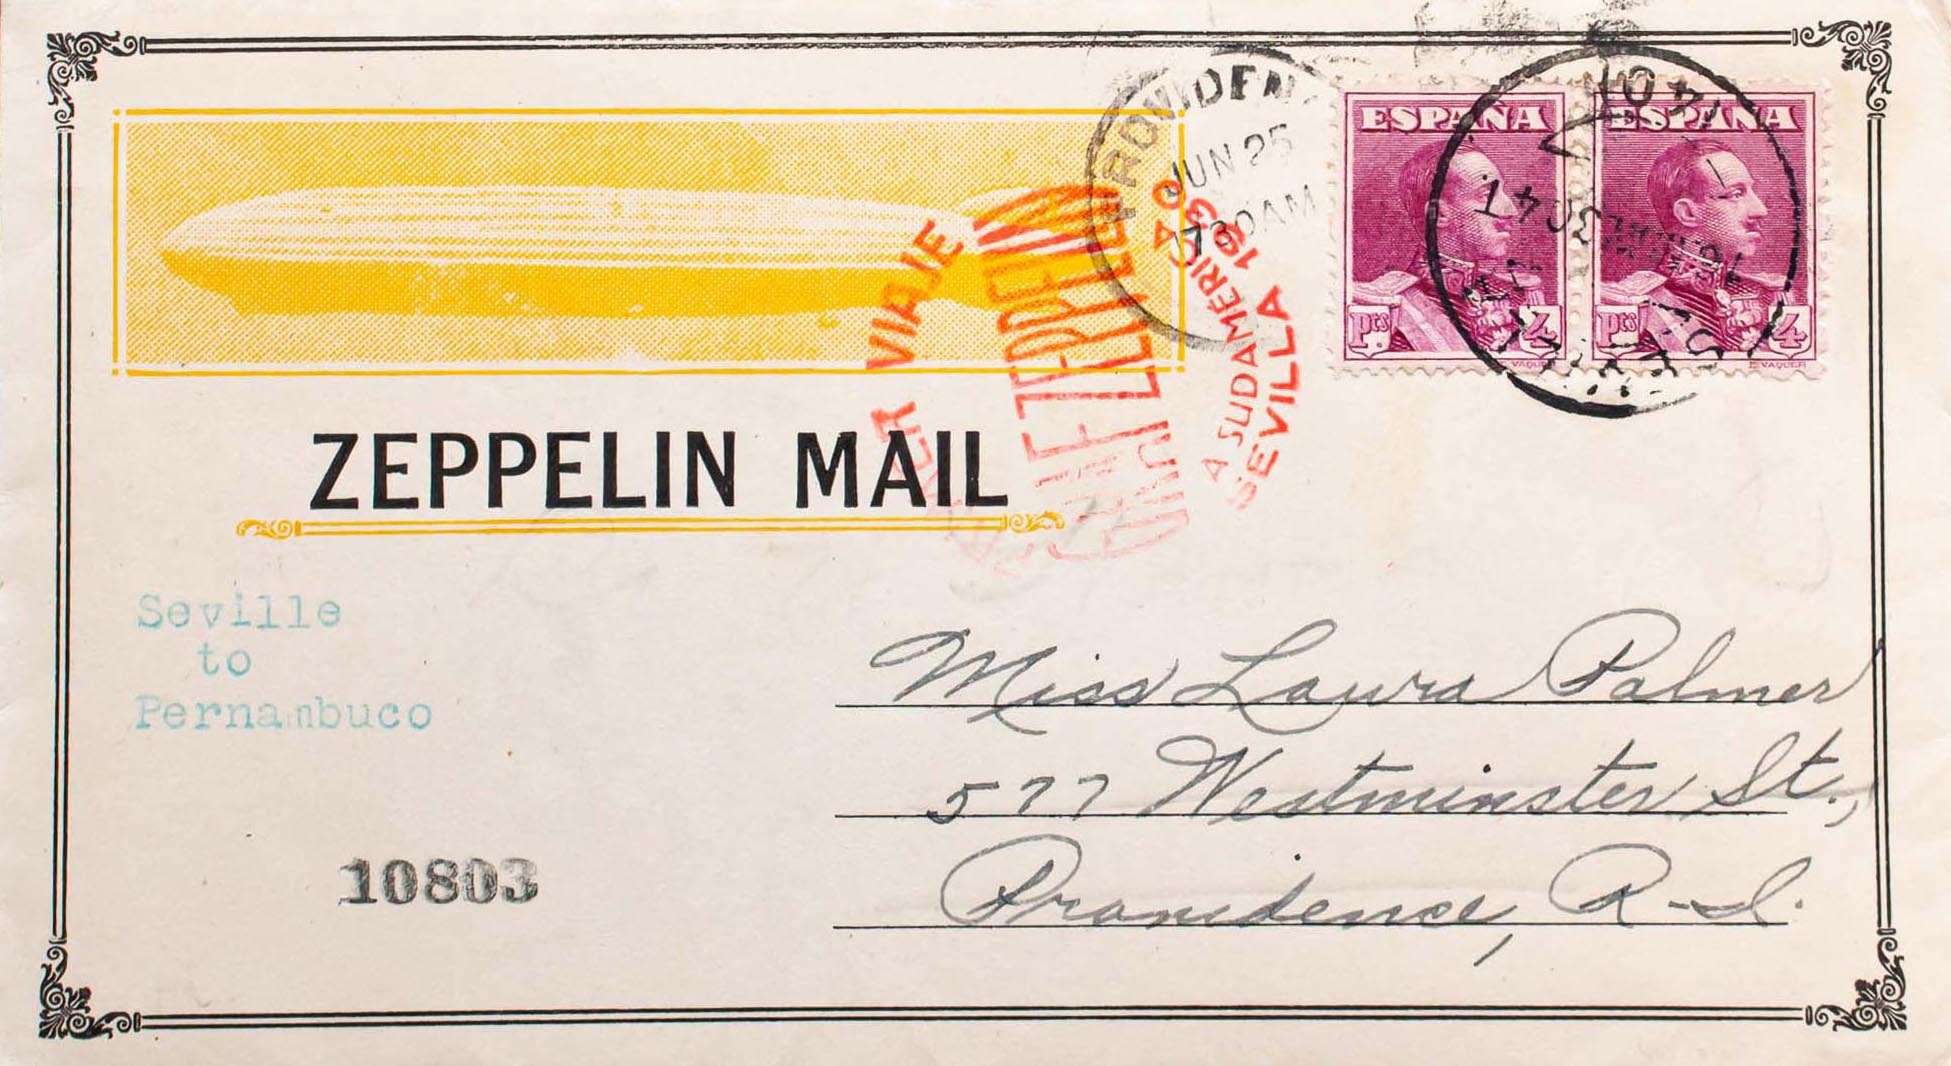 PROVIDEN
JUN 25
730 AM
1930
ESPAÑA
Pts 4
VAQUER
ESPAÑA
Pts 4
E. VAQUER
VIAJE
GRAF ZEPPELIN
A SUDAMERICA
SEVILLA 1930
ZEPPELIN MAIL
Seville
to
Pernambuco
Miss Laura Palmer
577 Westminster St.,
Providence, R-I.
10803